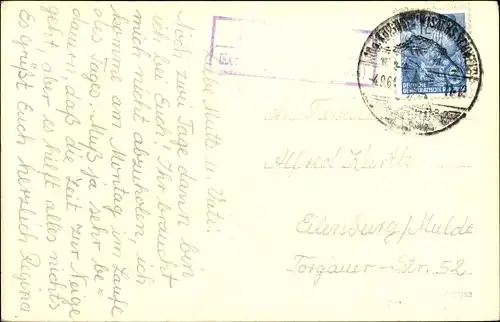 Liebe Mutti u. Vati!
Noch zwei Tage dann bin
ich bei Euch! Ihr braucht
mich nicht abzuholen, ich
komme am Montag im Laufe
des Tages. Muß ja sehr be=
dauern, daß die Zeit zur Neige
geht, aber es hilft alles nichts
Es grüßt Euch herzlich Regina.
DEUTSCHE
DEMOKRATISCHE
An Familie
Alfred Kurth
Eilenburg/Mulde
Torgauer-Str. 52